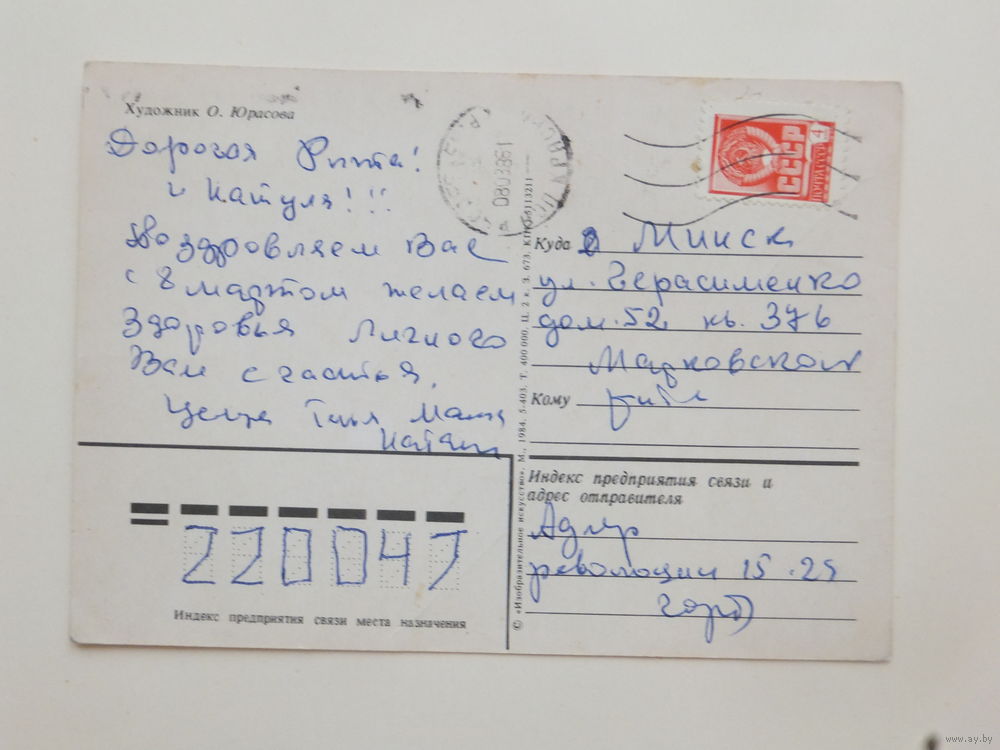 Художник О. Юрасова
Дорогая Рита!
и Катуля!!!
Поздровляем Вас
с 8 мартом желаем
Здоровья Личного
Вам счастья.
Таня Маша
СССР
4
ПОЧТА СССР
Куда Минск
ул. Герасименко
дом. 52 кв. 376
Марковской
Кому Рите
Индекс предприятия связи и
адрес отправителя
Адлер
революции 15. 25
220047
Индекс предприятия связи места назначения
© «Изобразительное искусство». М., 1984. 5-403. Т. 400 000. Ц. 2 к. З. 673.
www.ay.by